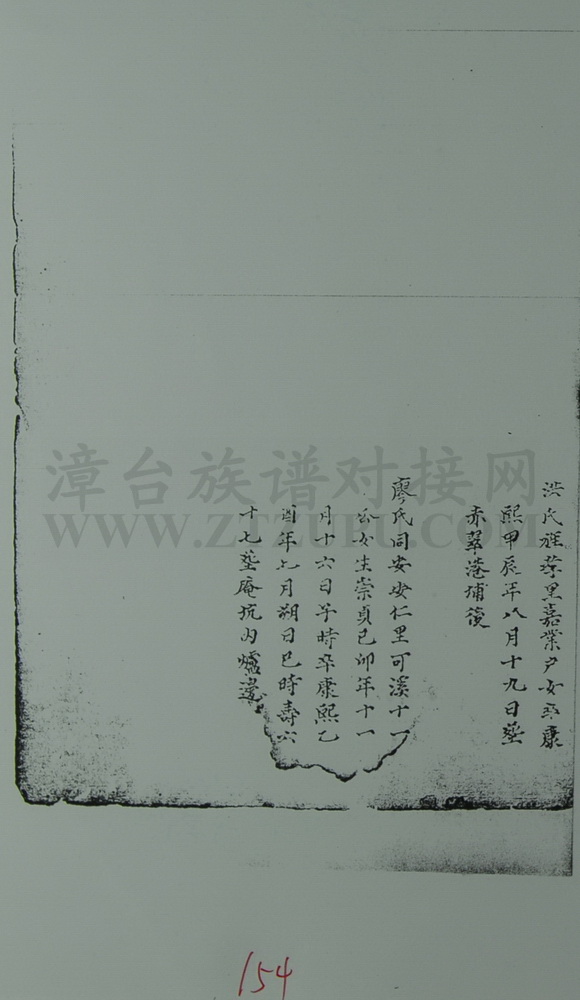 洪氏旌孝里嘉業户女卒康
熙甲辰年八月十九日塟
赤翠港埔後
廖氏同安安仁里可溪十一
公女生崇貞己卯年十一
月十六日午時卒康熙乙
酉年七月朔日巳時壽六
十七塟庵坑内爐邊
漳台族谱对接网
WWW.ZTZUPU.COM
154